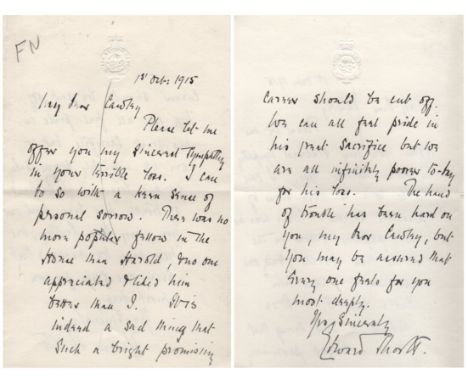 FN
1st Octr 1915
My Dear Cawley
Please let me
offer you my sincerest sympathy
in your terrible loss. I can
do so with a keen sense of
personal sorrow. There was no
more popular fellow in the
House than Harold, & no one
appreciated & liked him
better than I. It is
indeed a sad thing that
such a bright promising
career should be cut off.
We can all feel pride in
his great sacrifice but we
are all infinitely poorer to-day
for his loss. The hand
of trouble has been hard on
you, my Dear Cawley, but
you may be assured that
Every one feels for you
most deeply.
Yrs Sincerely
Edward Shortt.